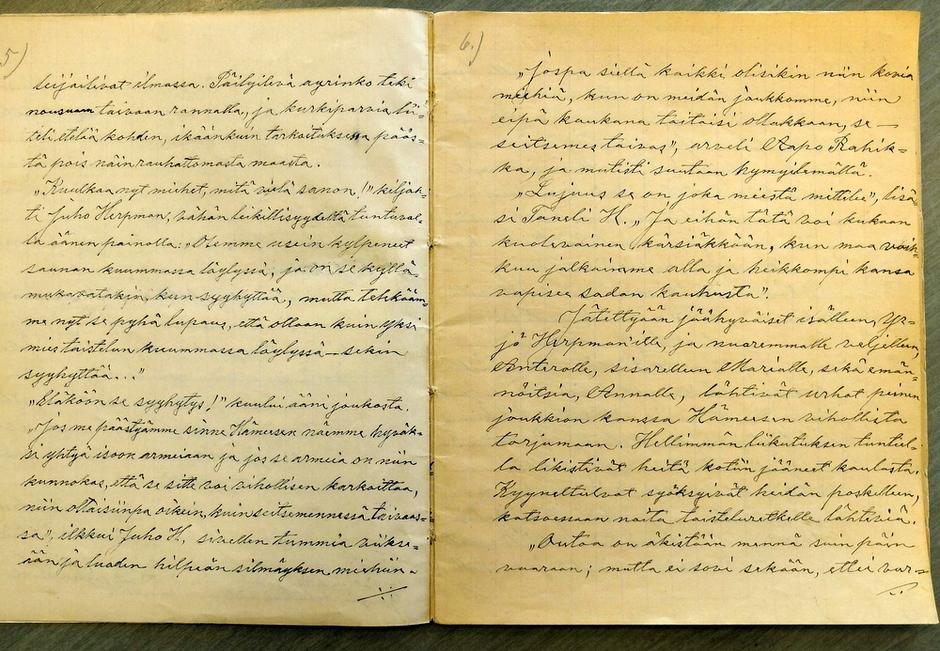 5)
leijailivat ilmassa. Päilyilevä ayrinko teki
nousuam taivaan rannalla, ja kurkiparvia lii=
teli etteliä kohden, ikäänkuin tarkoituksena pääs=
tä pois näin rauhattomasta maasta.
"Kuulkaa nyt miehet, mitä vielä sanon!" kiljah=
ti Juho Herpman, vähän leikillisyydeltä tuntuval=
la äänen painolla: "Olemme usein kylpeneet
saunan kuummassa löylyssä, ja on se kyllä
mukavatakin, kun syyhyttää, mutta tehkääm=
me nyt se pyhä lupaus, että ollaan kuin yksi
mies taistelun kuummassa löylyssä — sekin
syyhyttää..."
"Eläköön se syyhytys!" kuului ääni joukosta.
"Jos me päästyämme sinne Hämeesen näemme hyväk=
si yhtyä isoon armeiaan ja jos se armeia on niin
kunnokas, että se sitte voi vihollisen karkoittaa,
niin oltaisiinpa oikein, kuin seitsemennessä taivaas=
sa", ilkkui Juho H. sivellen tummia viikse=
ään ja luoden hilpeän silmäyksen miehiin.
6.)
"Jospa siellä kaikki olisikin niin kovia
miehiä, kun on meidän joukkomme, niin
eipä kaukana taitaisi ollakkaan, se —
seitsemes taivas", arveli Aapo Rahik=
ka, ja mutisti suutaan hymyilemällä.
"Lujuus se on, joka meistä mittelee", lisä
si Taneli H. "Ja eihän tätä voi kukaan
kuolevainen kärsiäkkään, kun maa vaik=
kuu jalkaimme alla ja heikkompi kansa
vapisee sodan kauhusta".
Jätettyään jäähyväiset isälleen, Yr=
jö Herpman'ille, ja nuoremmalle veljelleen,
Anterolle, sisarelleen Marialle, sekä emän=
nöitsiä, Annalle, lähtivät urhot peinen
joukkion kanssa Hämeesen vihollista
torjumaan. Hellimmän liikutuksen tuntiel=
la likistivät heitä kotiin jääneet kaulasta.
Kyyneltulvat syöksyivät heidän poskelleen,
katsoessaan noita taisteluretkelle lähtiviä.
"Outoa on äkistään mennä suin päin
vaaraan; mutta ei sovi sekään, ettei var=